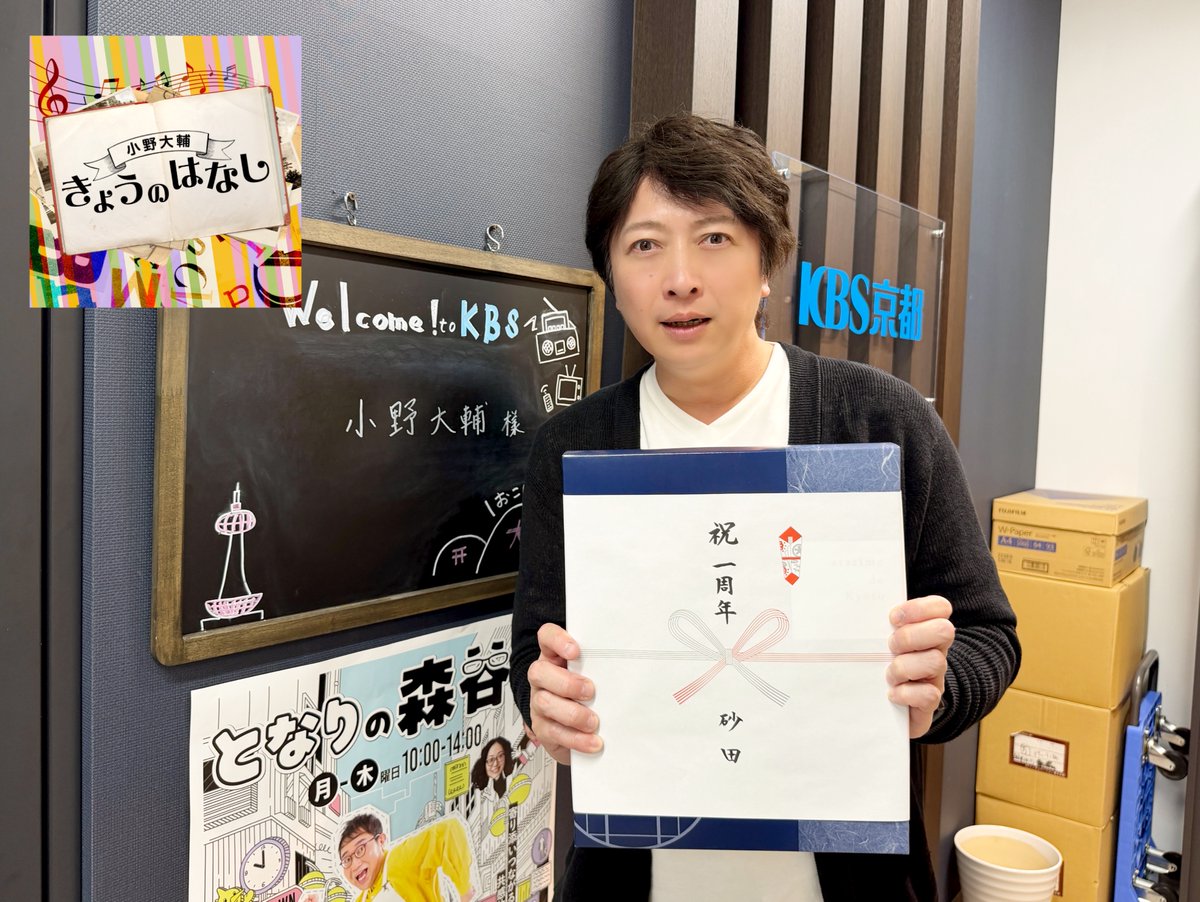 小野大輔
きょうのはなし
Welcome! to KBS
小野大輔 様
おこ
KBS京都
祝 一周年
砂田
となりの森谷
月-木曜日 10:00-14:00
FUJIFILM
W-Paper
A4